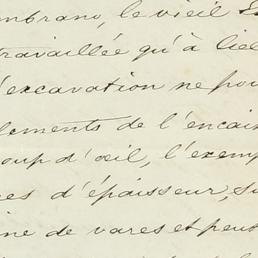 mbrano, le vieil
travaillée qu'à
d'excavation ne
lements de l'encais
coup d'œil, l'exemp
res d'épaisseur, su
ine de vares et peut